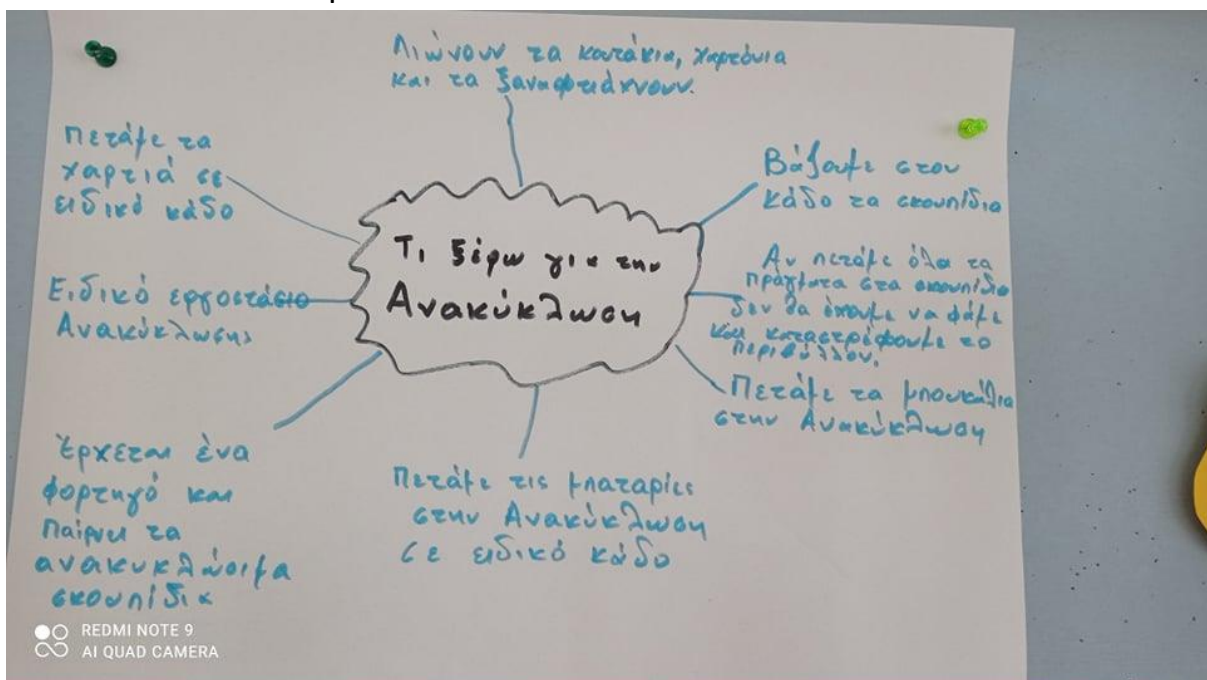 Λιώνουν τα κουτάκια, χαρτόνια
και τα ξαναφτιάχνουν.
Πετάμε τα
χαρτιά σε
ειδικό κάδο
Βάζουμε στον
κάδο τα σκουπίδια
Τι ξέρω για την
Ανακύκλωση
Αν πετάμε όλα τα
πράγματα στα σκουπίδια
δεν θα έχουμε να φάμε
και καταστρέφουμε το
περιβάλλον.
Ειδικό εργοστάσιο
Ανακύκλωσης
Πετάμε τα μπουκάλια
στην Ανακύκλωση
Έρχεται ένα
φορτηγό και
παίρνει τα
ανακυκλώσιμα
σκουπίδια
Πετάμε τις μπαταρίες
στην Ανακύκλωση
σε ειδικό κάδο
REDMI NOTE 9
AI QUAD CAMERA